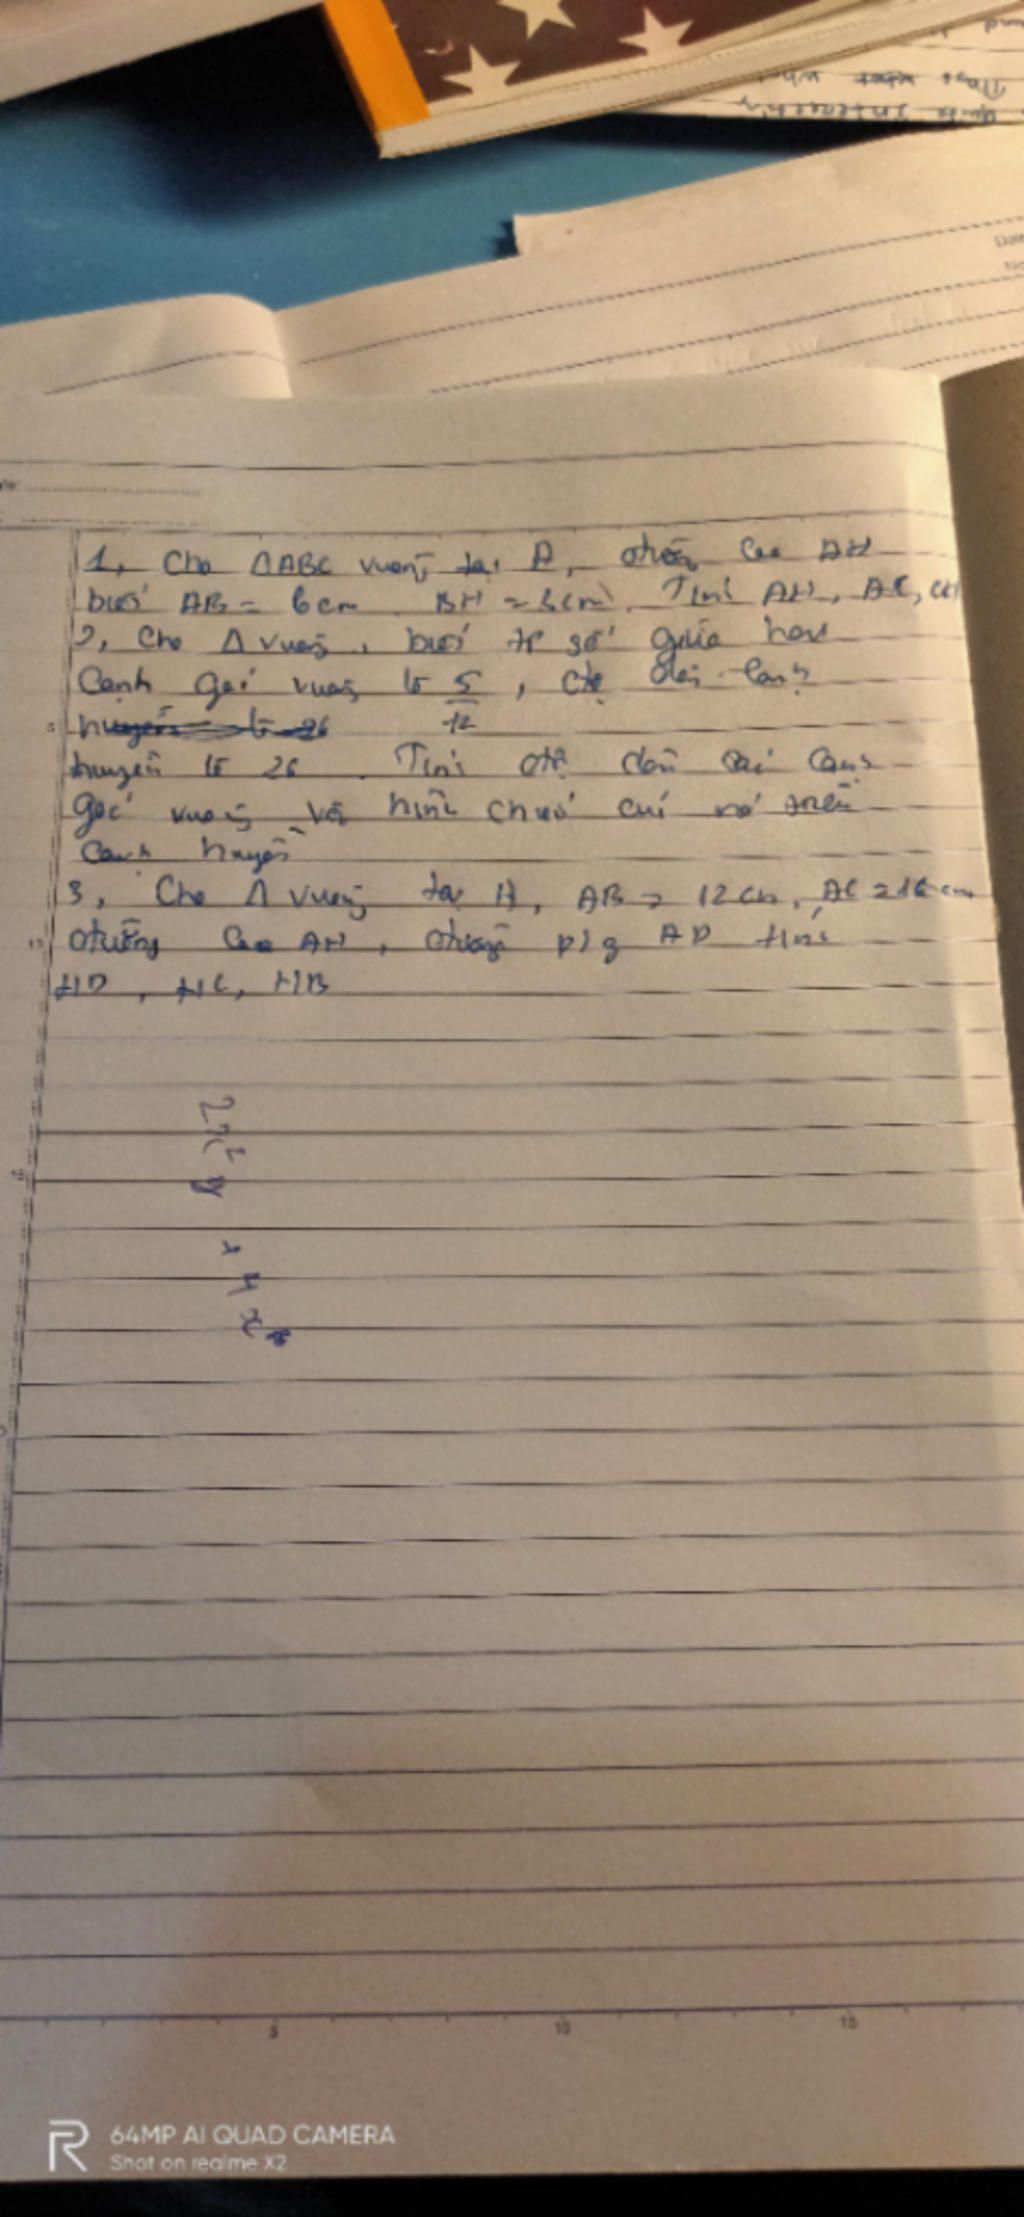 1, Cho ΔABC vuông tại A, đường cao AH
biết AB = 6cm. BH = 3cm. Tính AH, AC, CH
2, Cho Δ vuông, biết tỉ số giữa hai
cạnh góc vuông là 5/12, độ dài cạnh
huyền là 26
huyền là 26. Tính độ dài các cạnh
góc vuông và hình chiếu của nó trên
cạnh huyền
3, Cho Δ vuông tại A, AB = 12cm, AC = 16cm
đường cao AH, đường p/g AD tính
HD, HC, HB
2x² y
+ 4x
5 10 15
R 64MP AI QUAD CAMERA
Shot on realme X2